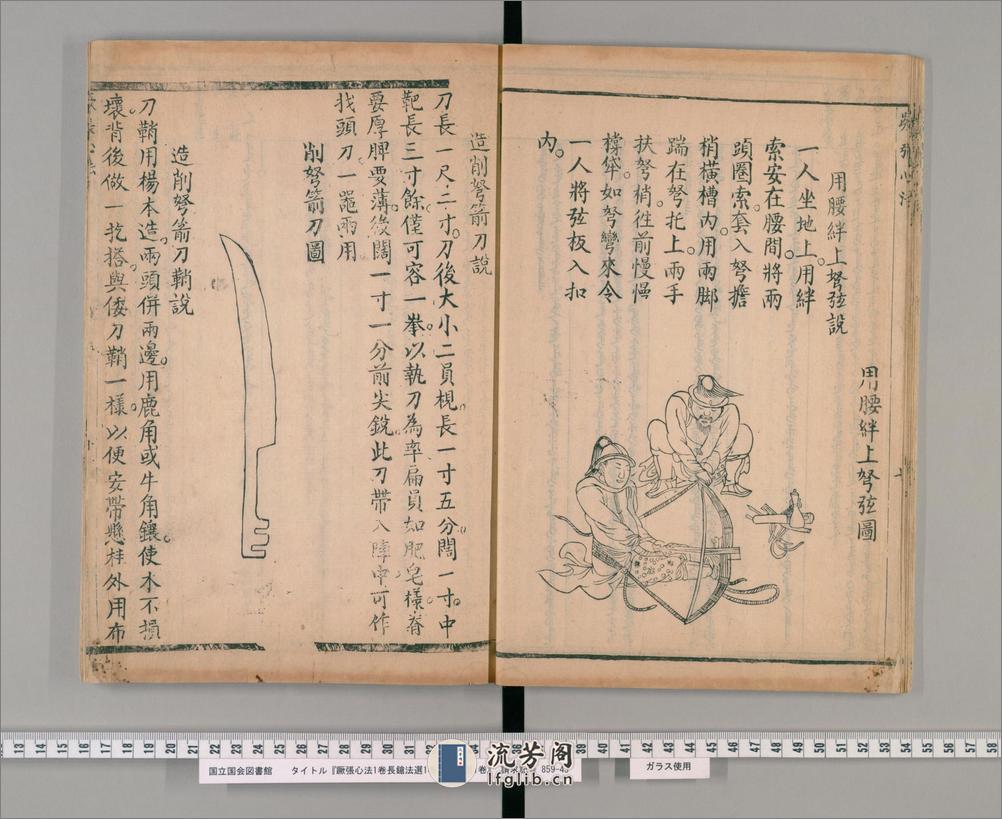 用腰絆上弩弦圖
用腰絆上弩弦說
一人坐地上。用絆
索安在腰間。將兩
頭圈索。套入弩擔
梢橫槽內。用兩脚
踹在弩托上。兩手
扶弩梢。徃前慢慢
如弩彎來。令
一人將弦扳入扣
內。
造削弩箭刀說
刀長一尺二寸。刀後大小二員梘。長一寸五分。闊一寸。中
靶長三寸餘。僅可容一拳。以執刀為率。扁員如肥皂樣。脊
要厚。脾要薄。後闊一寸一分。前尖銳。此刀帶入陣中。可作
找頭刀。一噐兩用
削弩箭刀圖
造削弩箭刀鞘說
刀鞘用楊木造。兩頭併兩邊。用鹿角或牛角鑲。使木不損
壞。背後做一扢搭。與倭刀鞘一樣。以便安帶懸拄。外用布
13 14 15 16 17 18 19 20 21 22 23 24 25 26 27 28 29 30 31 32 38 39 40 41 42 43 44 45 46 47 48 49 50 51 52 53 54 55 56 57 58
国立国会図書館 タイトル『蹶張心法1卷長鎗法選1 859-4
ガラス使用
流芳阁
lfglib.cn